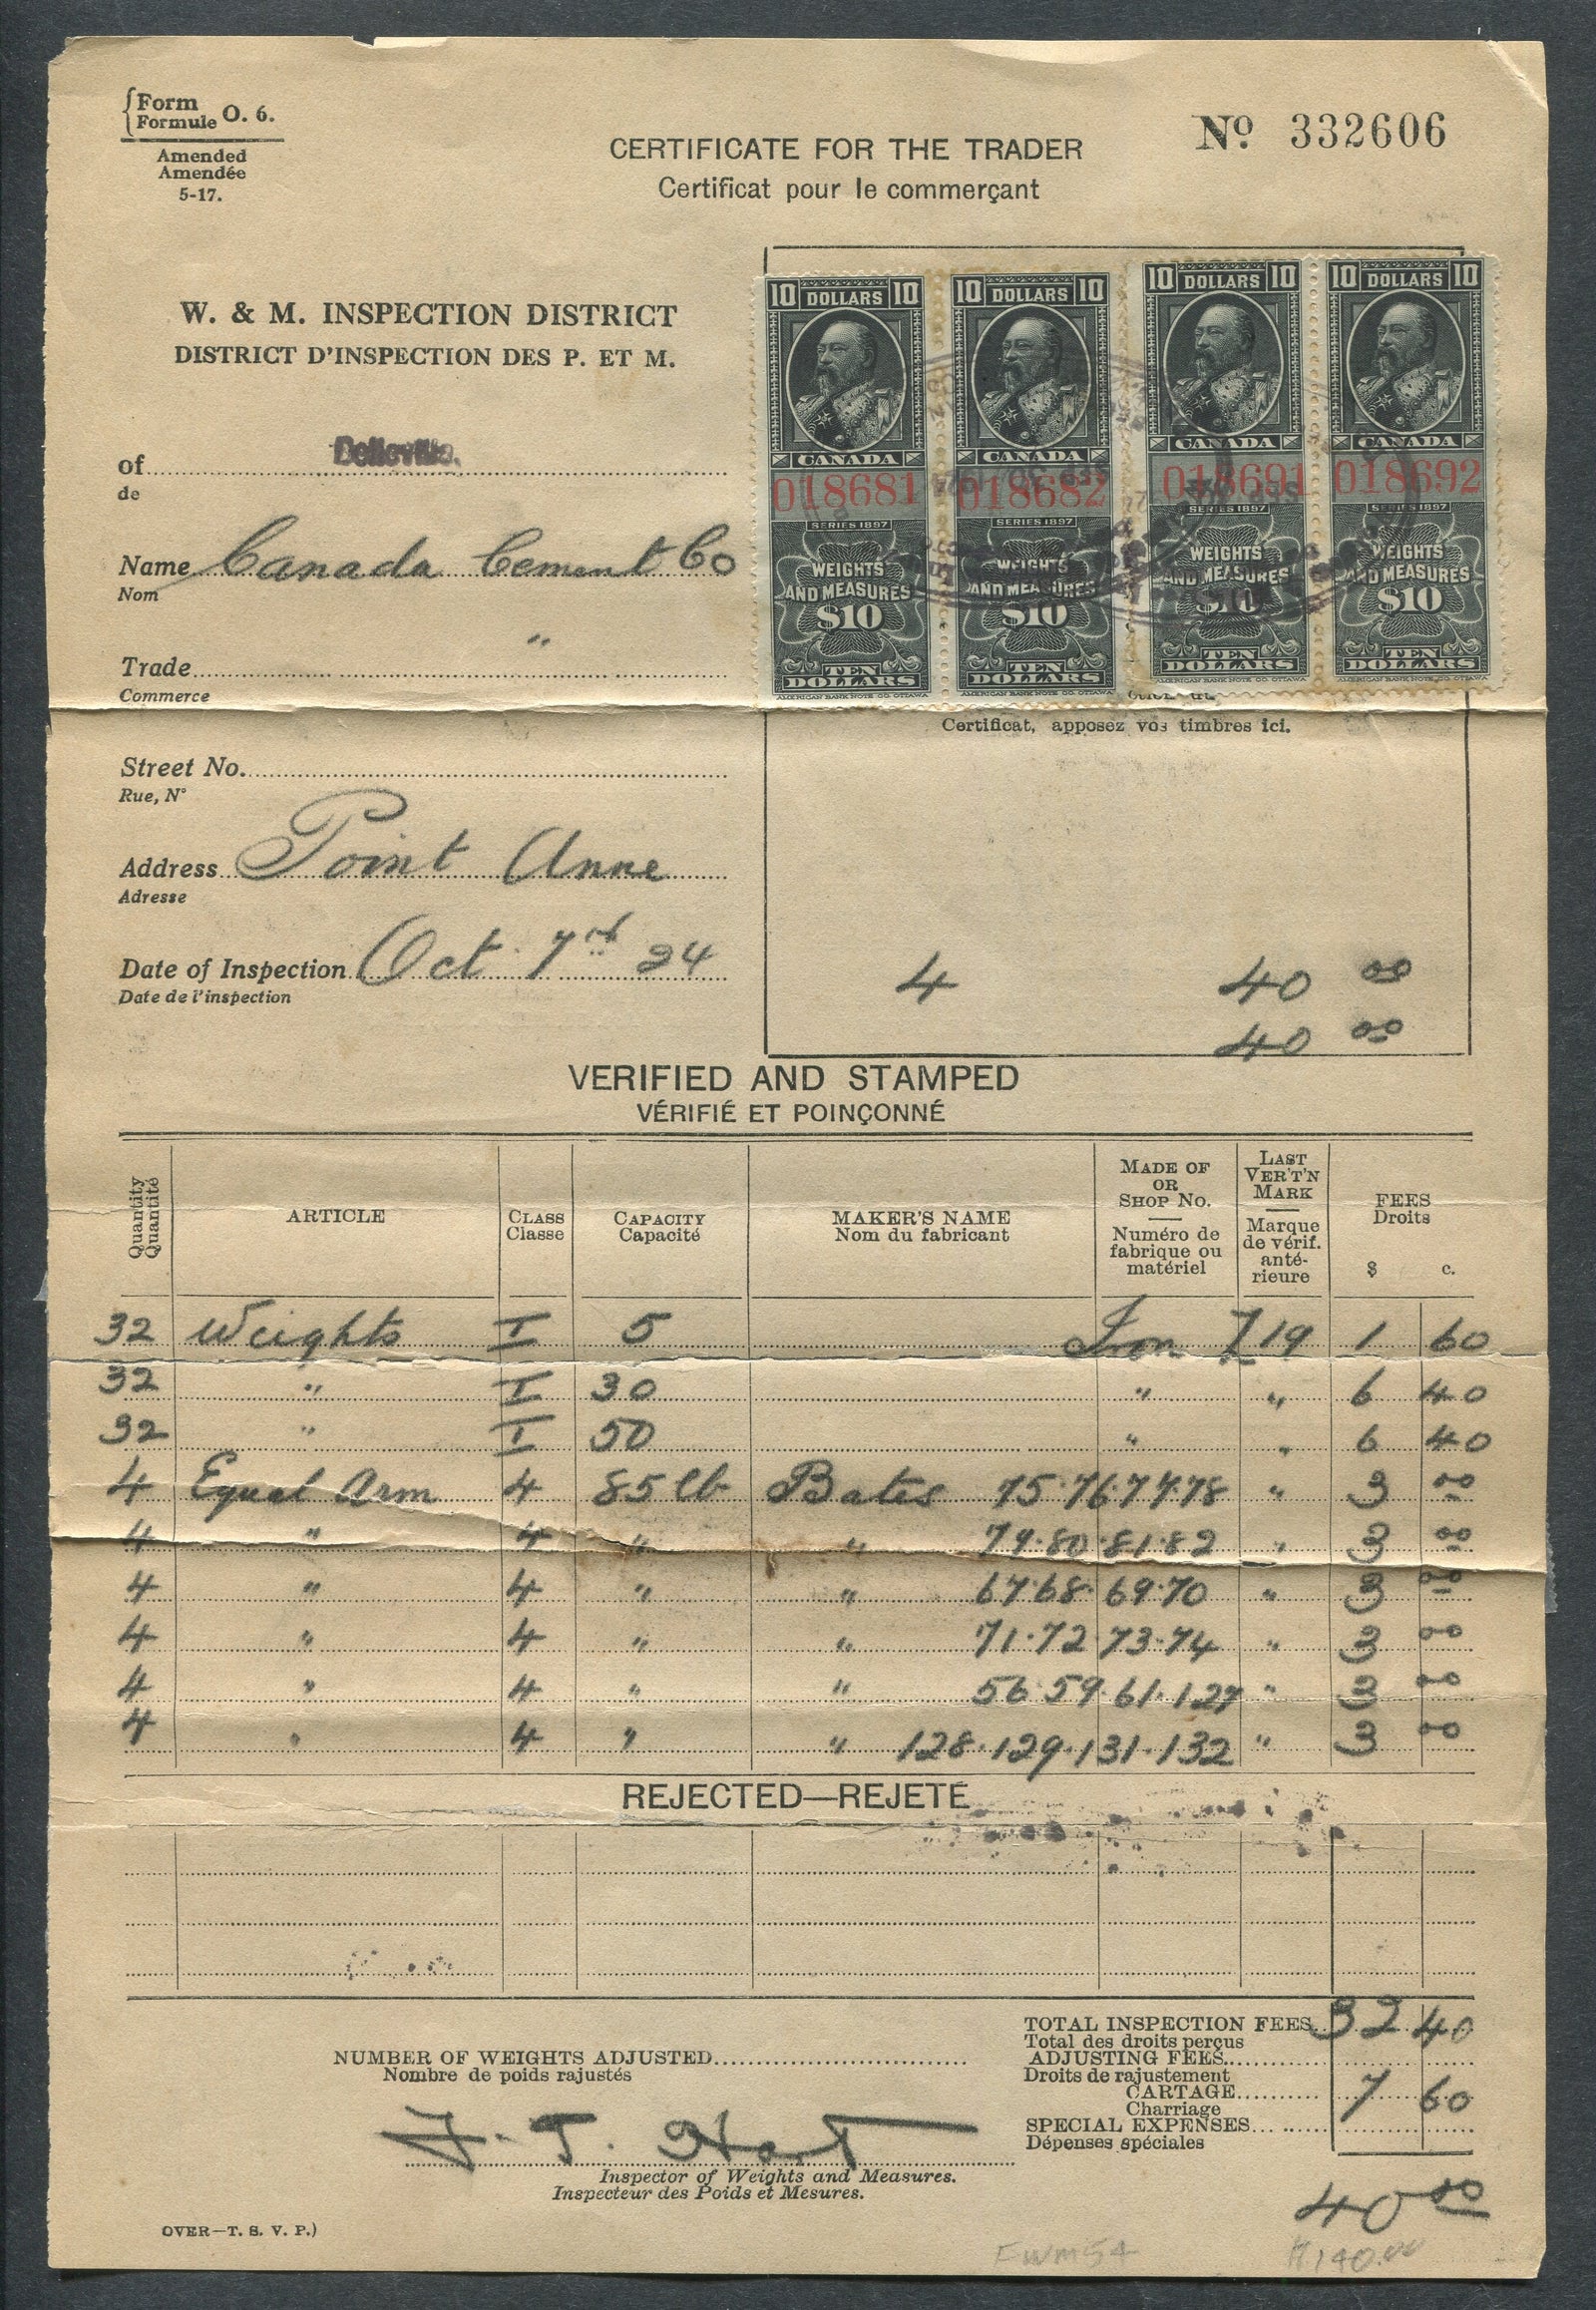 Form
Formule O. 6.
Amended
Amendée
5-17.
CERTIFICATE FOR THE TRADER
Certificat pour le commerçant
Nº 332606
W. & M. INSPECTION DISTRICT
DISTRICT D'INSPECTION DES P. ET M.
of Belleville.
de
Name Canada Cement Co
Nom
Trade "
Commerce
Street No.
Rue, Nº
Address Point Anne
Adresse
Date of Inspection Oct 7th 24
Date de l'inspection
10 DOLLARS 10 10 DOLLARS 10 10 DOLLARS 10 10 DOLLARS 10
CANADA CANADA CANADA CANADA
018681 018682 018691 018692
SERIES 1897 SERIES 1897 SERIES 1897 SERIES 1897
WEIGHTS WEIGHTS WEIGHTS WEIGHTS
AND MEASURES AND MEASURES AND MEASURES AND MEASURES
$10 $10 $10 $10
TEN TEN TEN TEN
DOLLARS DOLLARS DOLLARS DOLLARS
AMERICAN BANK NOTE CO. OTTAWA AMERICAN BANK NOTE CO. OTTAWA AMERICAN BANK NOTE CO. OTTAWA AMERICAN BANK NOTE CO. OTTAWA
Certificat, apposez vos timbres ici.
4 40 00
40 00
VERIFIED AND STAMPED
VÉRIFIÉ ET POINÇONNÉ
Quantity
Quantité
ARTICLE
CLASS
Classe
CAPACITY
Capacité
MAKER'S NAME
Nom du fabricant
MADE OF
OR
SHOP No.
Numéro de
fabrique ou
matériel
LAST
VER'T'N
MARK
Marque
de vérif.
anté-
rieure
FEES
Droits
$ c.
32 Weights I 5 Iron Z 19 1 60
32 " I 30 " " 6 40
32 " I 50 " " 6 40
4 Equal Arm 4 85 lb Bates 75·76·77·78 " 3 00
4 " 4 " " 79·80·81·82 " 3 00
4 " 4 " " 67·68·69·70 " 3 00
4 " 4 " " 71·72·73·74 " 3 00
4 " 4 " " 56·59·61·127 " 3 00
4 " 4 " " 128·129·131·132 " 3 00
REJECTED—REJETÉ
TOTAL INSPECTION FEES 32 40
Total des droits perçus
ADJUSTING FEES
Droits de rajustement
CARTAGE 7 60
Charriage
SPECIAL EXPENSES
Dépenses spéciales
40 00
NUMBER OF WEIGHTS ADJUSTED
Nombre de poids rajustés
Inspector of Weights and Measures.
Inspecteur des Poids et Mesures.
OVER—T. S. V. P.)
FWM54